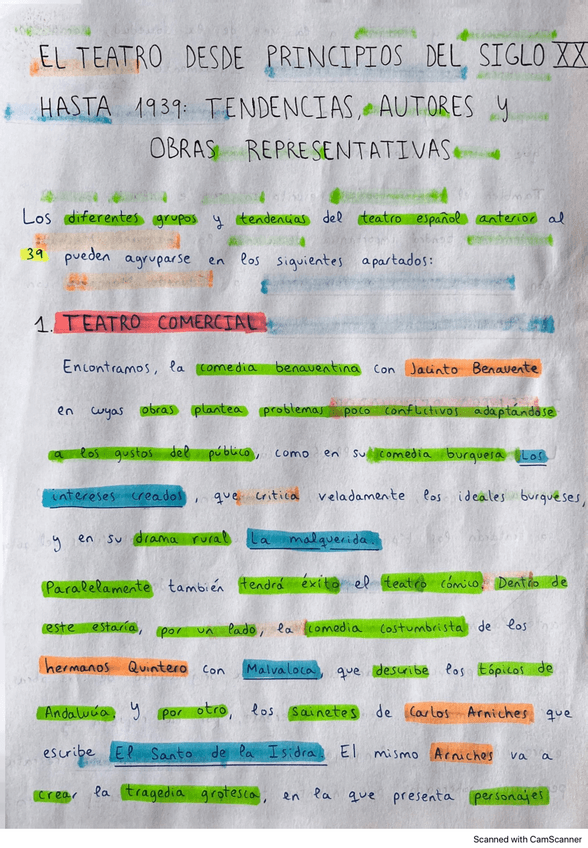 EL TEATRO DESDE PRINCIPIOS DEL SIGLO XX
HASTA 1939: TENDENCIAS, AUTORES y
OBRAS REPRESENTATIVAS
Los diferentes grupos y tendencias del teatro español anterior al
39 pueden agruparse en los siguientes apartados:
1. TEATRO COMERCIAL
Encontramos, la comedia benaventina con Jacinto Benavente
en cuyas obras plantea problemas poco conflictivos adaptándose
a los gustos del público, como en su comedia burguesa Los
intereses creados, que critica veladamente los ideales burgueses,
y en su drama rural La malquerida.
Paralelamente también tendrá éxito el teatro cómico. Dentro de
este estaría, por un lado, la comedia costumbrista de los
hermanos Quintero con Malvaloca, que describe los tópicos de
Andalucía, y por otro, los sainetes de Carlos Arniches que
escribe El Santo de la Isidra. El mismo Arniches va a
crear la tragedia grotesca, en la que presenta personajes
Scanned with CamScanner